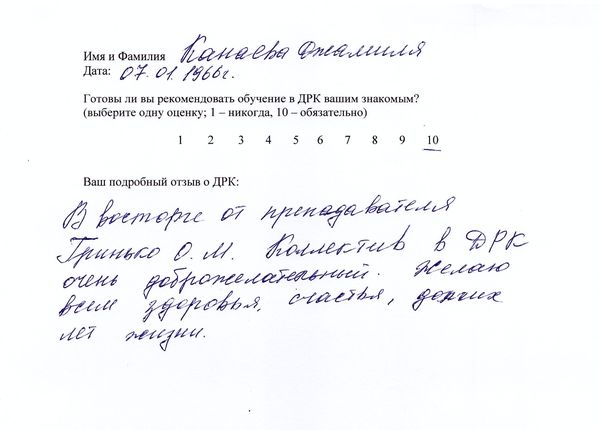 Имя и Фамилия Канаева Джамиля
Дата: 07.01.1966г.
Готовы ли вы рекомендовать обучение в ДРК вашим знакомым?
(выберите одну оценку; 1 – никогда, 10 – обязательно)
1 2 3 4 5 6 7 8 9 10
Ваш подробный отзыв о ДРК:
В восторге от преподавателя
Гринько О. М. Коллектив в ДРК
очень доброжелательный. Желаю
всем здоровья, счастья, долгих
лет жизни.